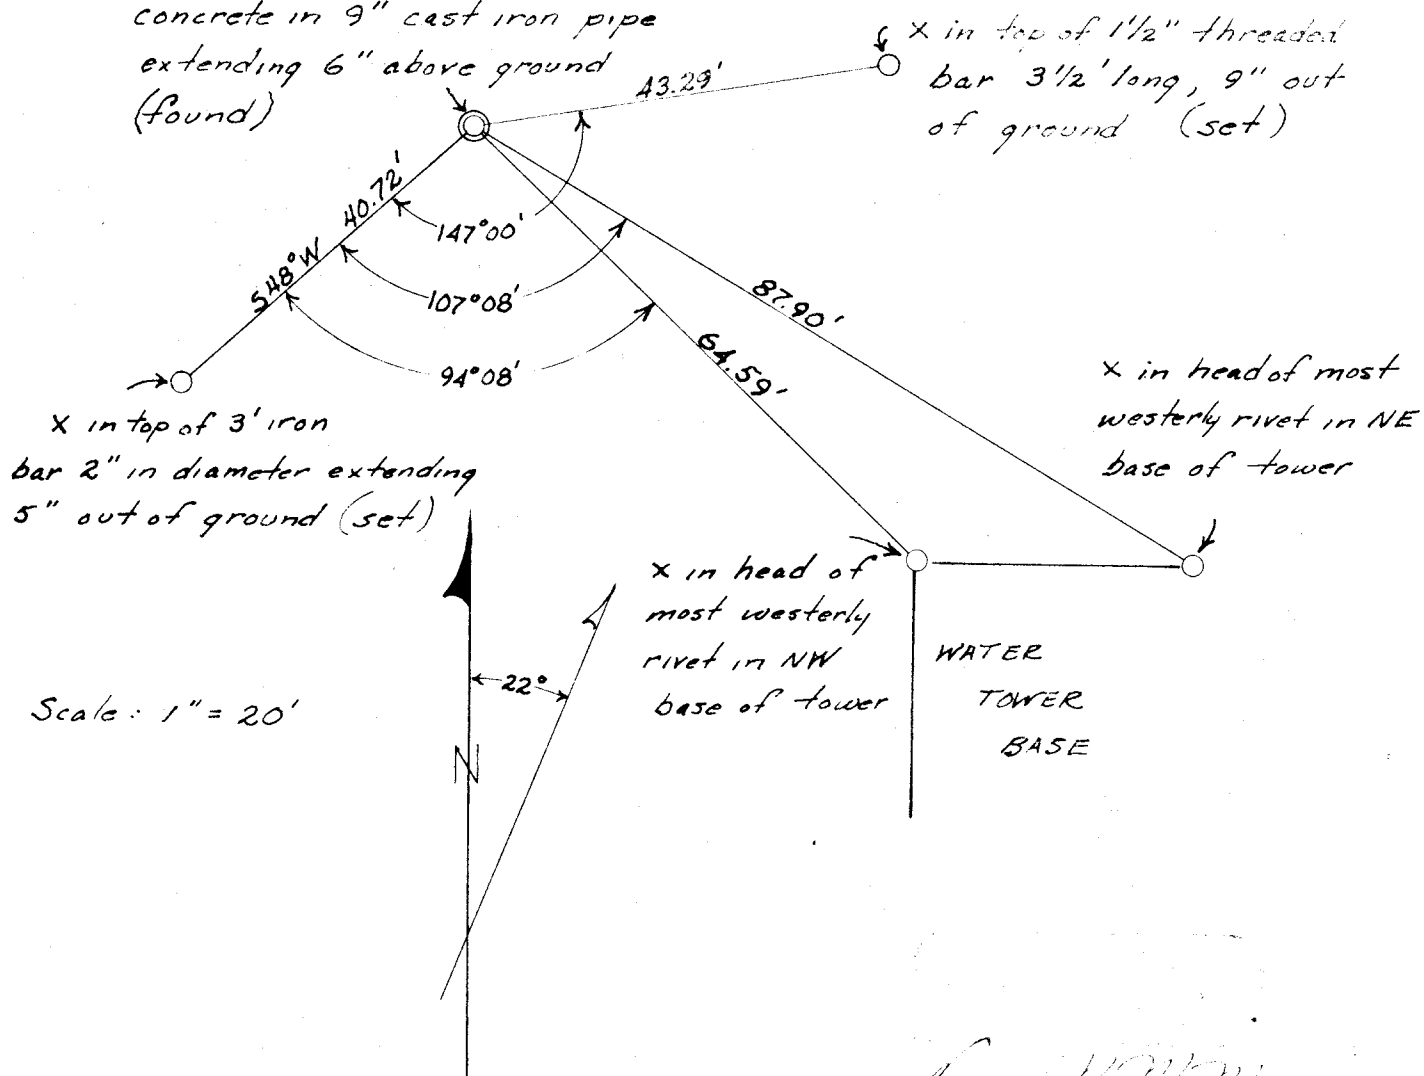 concrete in 9" cast iron pipe
extending 6" above ground
(found)
x in top of 1 1/2" threaded
bar 3 1/2' long, 9" out
of ground (set)
43.29'
40.72'
S48°W
147°00'
107°08'
94°08'
87.90'
64.59'
x in top of 3' iron
bar 2" in diameter extending
5" out of ground (set)
x in head of most
westerly rivet in NE
base of tower
x in head of
most westerly
rivet in NW
base of tower
WATER
TOWER
BASE
Scale: 1" = 20'
22°
N